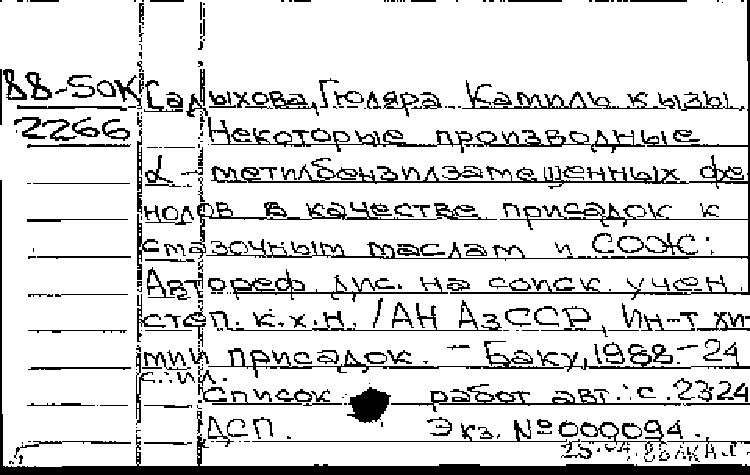 88-50К Садыхова, Гюляра Камиль кызы.
2266 Некоторые производные
α-метилбензилзамещенных фе-
нолов в качестве присадок к
смазочным маслам и СОЖ:
Автореф. дис. на соиск. учен.
степ. к.х.н. /АН АзССР, Ин-т хи-
мии присадок. - Баку, 1988.-24
с.:ил.
Список работ авт.: с.2324
ДСП. Экз. №000094.